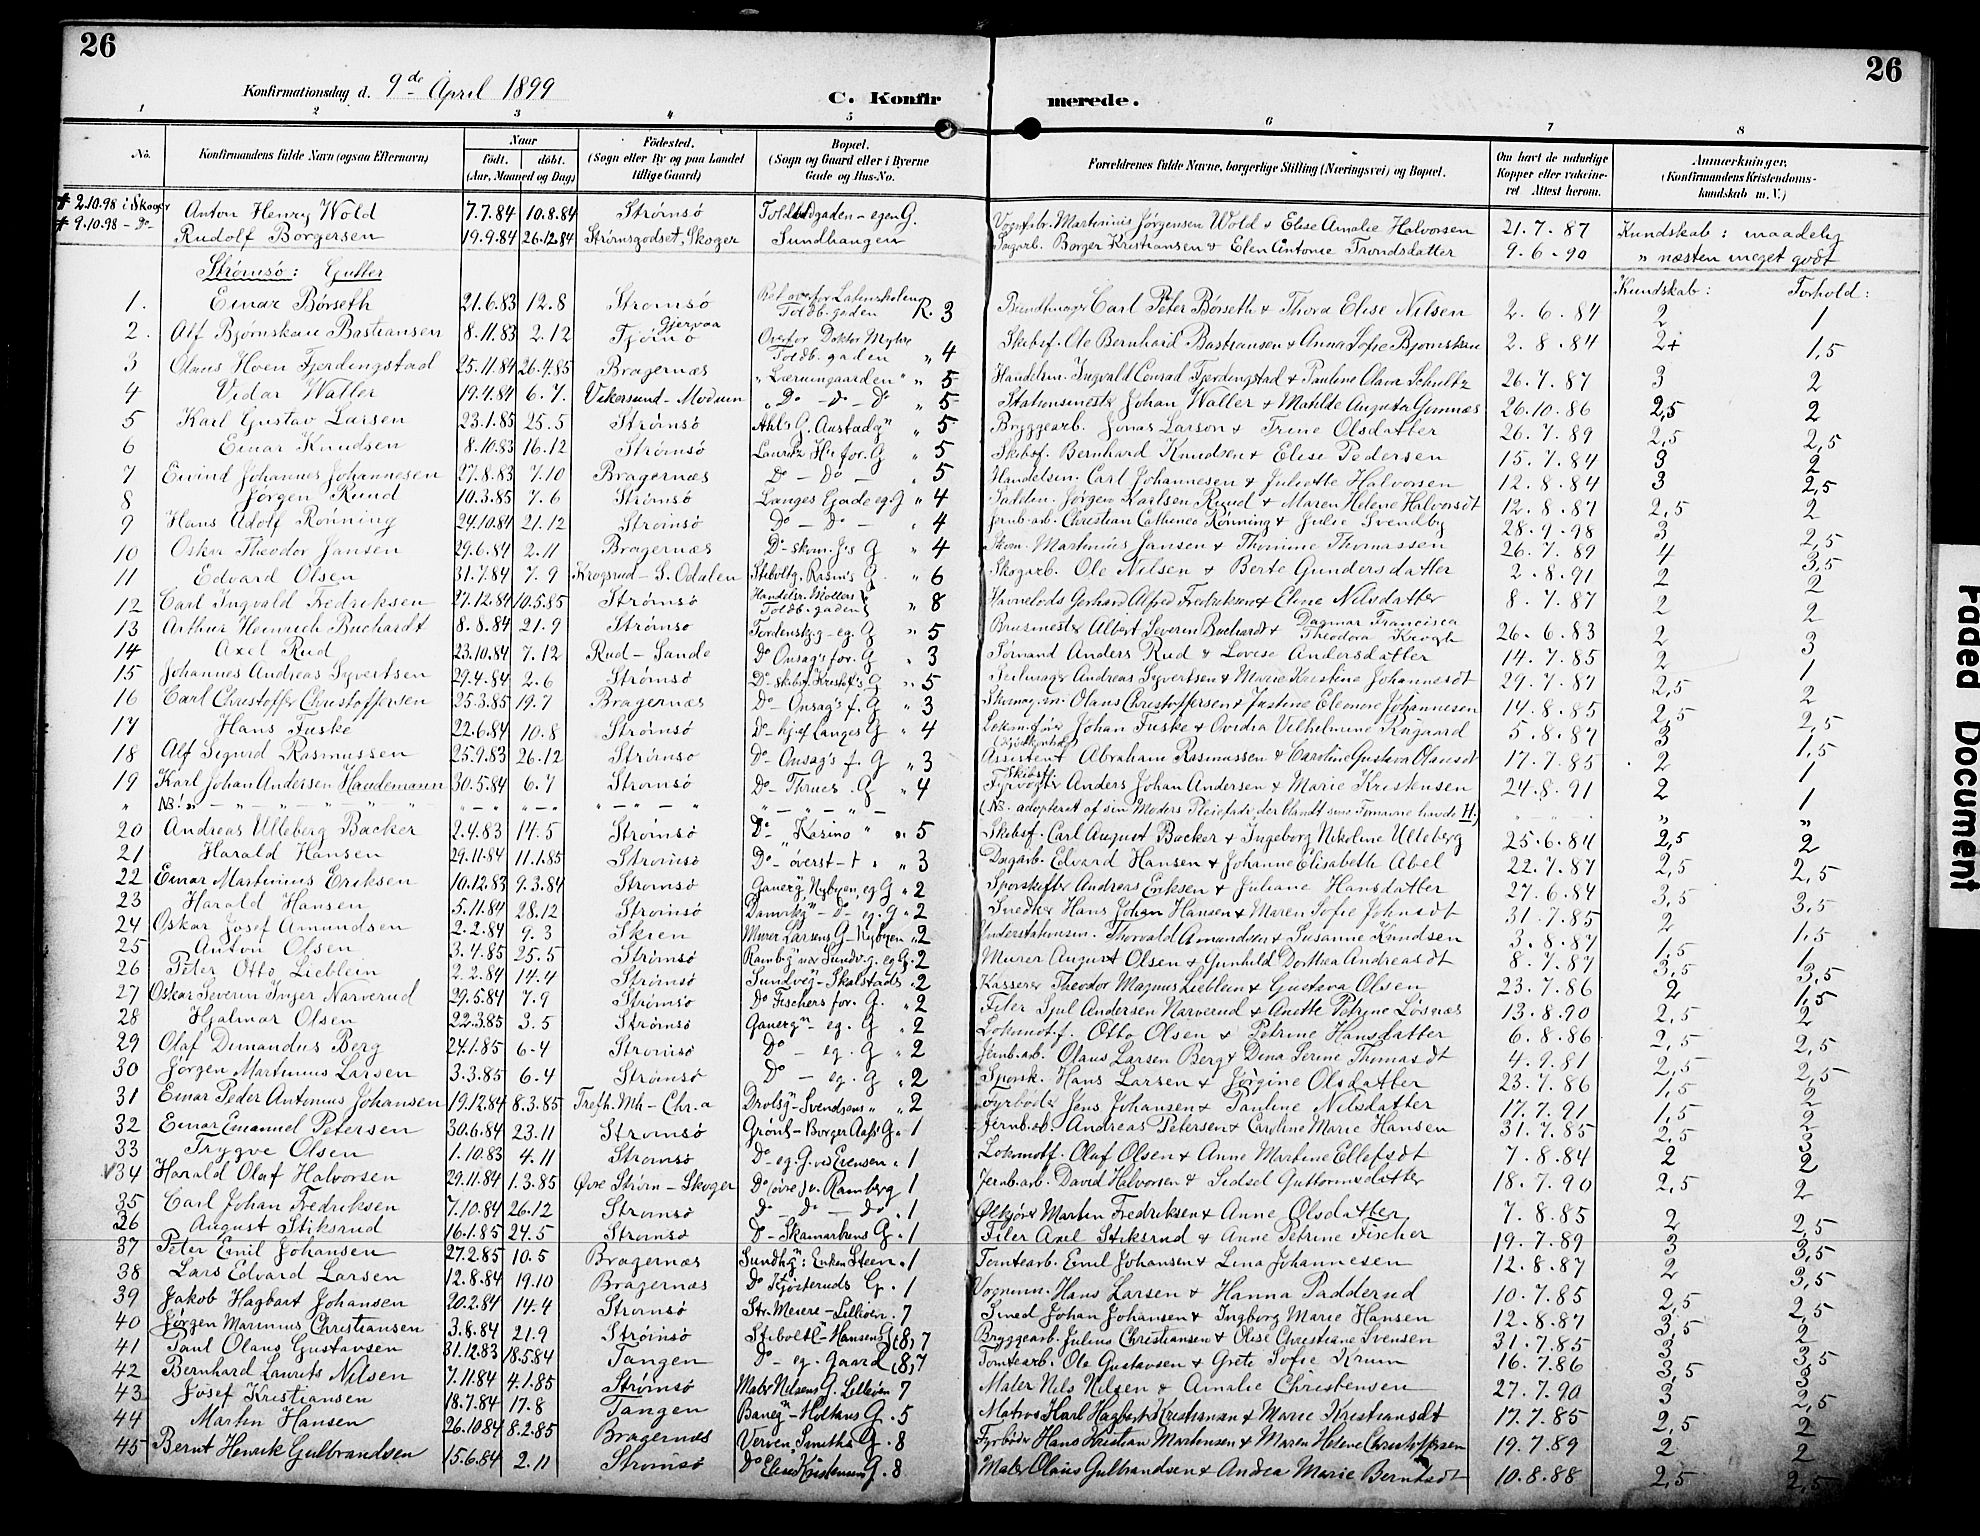 26
26
Konfirmationsdag d. 9de April 1899
C. Konfir merede.
1 2 3 4 5 6 7 8
No. Konfirmandens fulde Navn (ogsaa Efternavn) Naar født. døbt. (Aar, Maaned og Dag) Fødested. (Sogn eller By og paa Landet tillige Gaard) Bopæl. (Sogn og Gaard eller i Byerne Gade og Hus-No. Forældrenes fulde Navne, borgerlige Stilling (Næringsvei) og Bopæl. Om havt de naturlige Kopper eller vaccineret Attest herom. Anmærkninger. (Konfirmandens Kristendomskundskab m. V.)
# 2.10.98 i Skoger Anton Henry Wold 7.7.84 10.8.84 Strømsö Toldbodgaden - egen G. Martinius Jørgensen Wold & Elise Amalie Halvorsen 21.7.87 Kundskab: maadelig
# 9.10.98 - Do - Rudolf Borgersen 19.9.84 26.12.84 Strömsgodset, Skoger Sundhaugen Dagarb. Borger Kristiansen & Elen Antonie Trondsdatter 9.6.90 " næsten meget godt
Strömsö: Gutter Kundskab: Forhold:
1. Einar Börseth 21.6.83 12.8 Strömsö Ret overfor Latinskolen Toldb.gaden R. 3 Carl Peter Börseth & Thora Elise Nilsen 2.6.84 2 1
2. Alf Bjørnskau Bastiansen 8.11.83 2.12 Tjömö Overfor Doktor Myhre Toldb.gaden " 4 Skibsf. Ole Bernhard Bastiansen & Anna Sofie Bjørnskau 2.8.84 2+ 1,5
3 Olaus Hoen Fjerdingstad 25.11.84 26.4.85 Bragernæs " " 5 Handelsm. Ingvald Conrad Fjerdingstad & Pauline Olava Schultz 26.7.87 3 2
4 Vidar Waller 19.4.84 6.7. Vikersund - Modum " Do - do - Do " 5 Stationsmester Johan Waller & Matilde Augusta Gumnæs 26.10.86 2,5 2
5 Karl Gustav Larsen 23.1.85 25.5 Strömsö Ahl's G. " 5 Bryggearb. Jonas Larson & Trine Olsdatter 26.7.89 2,5 2,5
6 Einar Knudsen 8.10.83 16.12 Strömsö G " 5 Skibsf. Bernhard Knudsen & Elise Pedersen 15.7.84 3 2
7 Eivind Johannes Johannesen 27.8.83 7.10 Bragernæs Do - Do - " 5 Handelsm. Carl Johannesen & Juliette Halvorsen 12.8.84 3 2,5
8 Jörgen Ruud 10.3.85 7.6 Strömsö Langes Gade eg. G " 4 Jörgen Karlsen Ruud & Maren Helene Halvorsdt 12.8.87 2,5 2
9 Hans Adolf Rönning 24.10.84 21.12 Strömsö Do - Do - " 4 Jernb.arb. Christian Rönning & Julie Svendby 28.9.98 3 2,5
10 Oskar Theodor Jansen 29.6.84 2.11 Bragernæs Do - G " 4 Skom. Martinius Jansen & Thomine Thomassen 26.7.89 4 3,5
11 Edvard Olsen 31.7.84 7.9 Krogsrud - S. Odalen Stiboltg. Rasm's G. " 6 Skogarb. Ole Nilsen & Berte Gundersdatter 2.8.91 2 2
12 Carl Ingvald Fredriksen 27.12.84 10.5.85 Strömsö Handelsr. Möllers Toldb.gaden " 8 Havnelods Gerhard Alfred Fredriksen & Eline Nilsdatter 8.7.87 2 2
13 Arthur Heinrich Buchardt 8.8.84 21.9 Strömsö Tordenskg. - eg. G " 5 Albert Severin Buchardt & Dagmar Francisca Theodora 26.6.83 2 3
14 Axel Rud 23.10.84 7.12 Rud - Sande Do Onsag's for. G " 3 Tømmand Anders Rud & Lovise Andersdatter 14.7.85 2 1
15 Johannes Andreas Syvertsen 29.4.84 2.6 Strömsö Do - skibsf. G " 5 Seilmager Andreas Syvertsen & Marie Kristine Johannesdt 29.7.87 2,5 2
16 Carl Christoffer Christoffersen 25.3.85 19.7 Bragernæs Do - Onsag's f. G " 3 Olaus Christoffersen & Justine Eleonore Johannesen 14.8.85 2,5 2,5
17 Hans Fuske 22.6.84 10.8 Strömsö Do - Langes G " 4 Johan Fuske & Ovidia Vilhelmine Rögaard 5.8.87 3 1,5
18 Alf Sigurd Rasmussen 25.9.83 26.12 Strömsö Do - Onsag's f. G " 3 Assistent Abraham Rasmussen & Caroline Gustava Olausdt 17.7.85 2 1
19 Karl Johan Andersen Haudemann 30.5.84 6.7 Strömsö Do - Thrues. G " 4 Skibsf. Fyrvogter Anders Johan Andersen & Marie Kristensen 24.8.91 2 1
" NB! " - " - " - " " - " " - " " - " - " " - " - " - (NB. adopteret af sin Moders Pleiefader, der blandt sine Fornavne havde H.) " "
20 Andreas Ulleberg Backer 2.4.83 14.5 Strömsö Do - "Kasino" " 5 Skibsf. Carl August Backer & Ingeborg Nikoline Ulleberg 25.6.84 2,5 2
21 Harald Hansen 29.11.84 11.1.85 Strömsö Do - överst - t " " 3 Dagarb. Edvard Hansen & Johanne Elisabeth Abel 22.7.87 2,5 2,5
22 Einar Martinius Eriksen 10.12.83 9.3.84 Strömsö Nybyen, eg. G " 2 Sporskifter Andreas Eriksen & Juliane Hansdatter 27.6.84 3,5 3,5
23 Harald Hansen 5.11.84 28.12 Strömsö - Do - eg. G " 2 Snedker Hans Johan Hansen & Maren Sofie Johnsdt 31.7.85 2 1,5
24 Oskar Josef Amundsen 2.2.84 9.3 Skien Murer Larsens G - Nybyen " 2 Thorvald Amundsen & Susanne Knudsen 3.8.87 1,5 1
25 Anton Olsen 3.4.85 25.5 Strömsö eg. G. 2 Murer August Olsen & Gunhild Dorthea Andreasdt 8.7.87 3,5 3,5
26 Peter Otto Lieblein 2.2.84 14.4 Strömsö Sundveg - Skalstads . 2 Kasserer Theodor Magnus Lieblein & Gustava Olsen 23.7.86 2 1,5
27 Oskar Severin Inger Narverud 29.5.84 7.9 Strömsö Do Fischers for. G. " 2 Filer Sjul Andersen Narverud & Anette Petrine Løsnæs 13.8.90 2,5 2
28 Hjalmar Olsen 22.3.85 3.5 Strömsö - eg. G " 2 Lokomotf. Otto Olsen & Petrine Hansdatter 6.8.86 2,5 2,5
29 Olaf Dimandus Berg 24.1.85 6.4 Strömsö Do - eg. G " 2 Jernb.arb. Olaus Larsen Berg & Dina Serine Thomasdt 4.9.81 2,5 2,5
30 Jörgen Martinius Larsen 3.3.85 6.4 Strömsö Do - eg. G " 2 Sporsk. Hans Larsen & Jörgine Olsdatter 23.7.86 1,5 2
31 Einar Peder Antonius Johansen 19.12.84 8.3.85 Trefh. Mh - Chr.a - Svendsens " " 2 Fyrböder Jens Johansen & Pauline Nilsdatter 17.7.91 1,5 2
32 Einar Emanuel Petersen 30.6.84 23.11 Strömsö Grönl - Borger Aas' G. 1 Jernb.arb. Andreas Petersen & Caroline Marie Hansen 31.7.85 2,5 3
33 Trygve Olsen 1.10.83 4.11 Strömsö Do - eg. G. ved Evensen " 1 Lokomotf. Olaf Olsen & Anne Martine Ellefsdt 7.8.84 2 2
√34 Harald Olaf Halvorsen 29.11.84 1.3.85 Övre Ström - Skoger Do (övre) v. Ramberg 1 Jernb.arb. David Halvorsen & Sidsel Guttormsdatter 18.7.90 2,5 2
35 Carl Johan Fredriksen 7.10.84 26.12 Strömsö Do - Do - Do " 1 Ølkjører Martin Fredriksen & Anne Olsdatter 7.8.85 2 2,5
36 August Stiksrud 16.1.85 24.5 Strömsö Do - Skamarkens G. 1 Filer Axel Stiksrud & Anne Petrine Fischer 19.7.89 3 3,5
37 Peter Emil Johansen 27.2.85 10.5 Bragernæs : Enken Steen . 1 Tomtearb. Emil Johansen & Lina Johannesen 12.8.87 2 3,5
38 Lars Edvard Larsen 12.8.84 19.10 Bragernæs Do G. . 1 Vognm. Hans Larsen & Hanna Padderud 10.7.85 2,5 2,5
39 Jakob Hagbart Johansen 20.2.84 14.4 Strömsö Str. Meieri - Lillöien . 7 Smed Johan Johansen & Ingborg Marie Hansen 12.8.87 3,5 2
40 Jörgen Marinius Christiansen 3.8.84 21.9 Strömsö Stiboltg - Hansens G (8) 7 Bryggearb. Julius Christiansen & Olise Christiane Svensen 31.7.85 3 3,5
41 Paul Olaus Gustavsen 31.12.83 18.5.84 Tangen Do - eg. Gaard (8) 7 Tomtearb. Ole Gustavsen & Grete Sofie Krum 16.7.86 3,5 3
42 Bernhard Laurits Nilsen 7.11.84 4.1.85 Strömsö Maler Nilsens G. Lilleöien 7 Maler Nils Nilsen & Amalie Christensen 27.7.90 3 2,5
43 Josef Kristiansen 18.7.84 17.8 Tangen - Holtans G . 5 Matros Karl Hagbart Kristiansen & Marie Kristiansdt 17.7.85 2,5 2
44 Martin Hansen 26.10.84 8.2.85 Bragernæs Verven, Smiths G . 8 Fyrböder Hans Kristian Martinsen & Maren Helene Christoffersen 19.7.89 2 2
45 Bernt Henrik Gulbrandsen 15.6.84 2.11 Strömsö Do Elise Kristensens G . 8 Maler Olaus Gulbrandsen & Andrea Marie Berntsdt 10.8.88 2,5 2,5
Faded Document